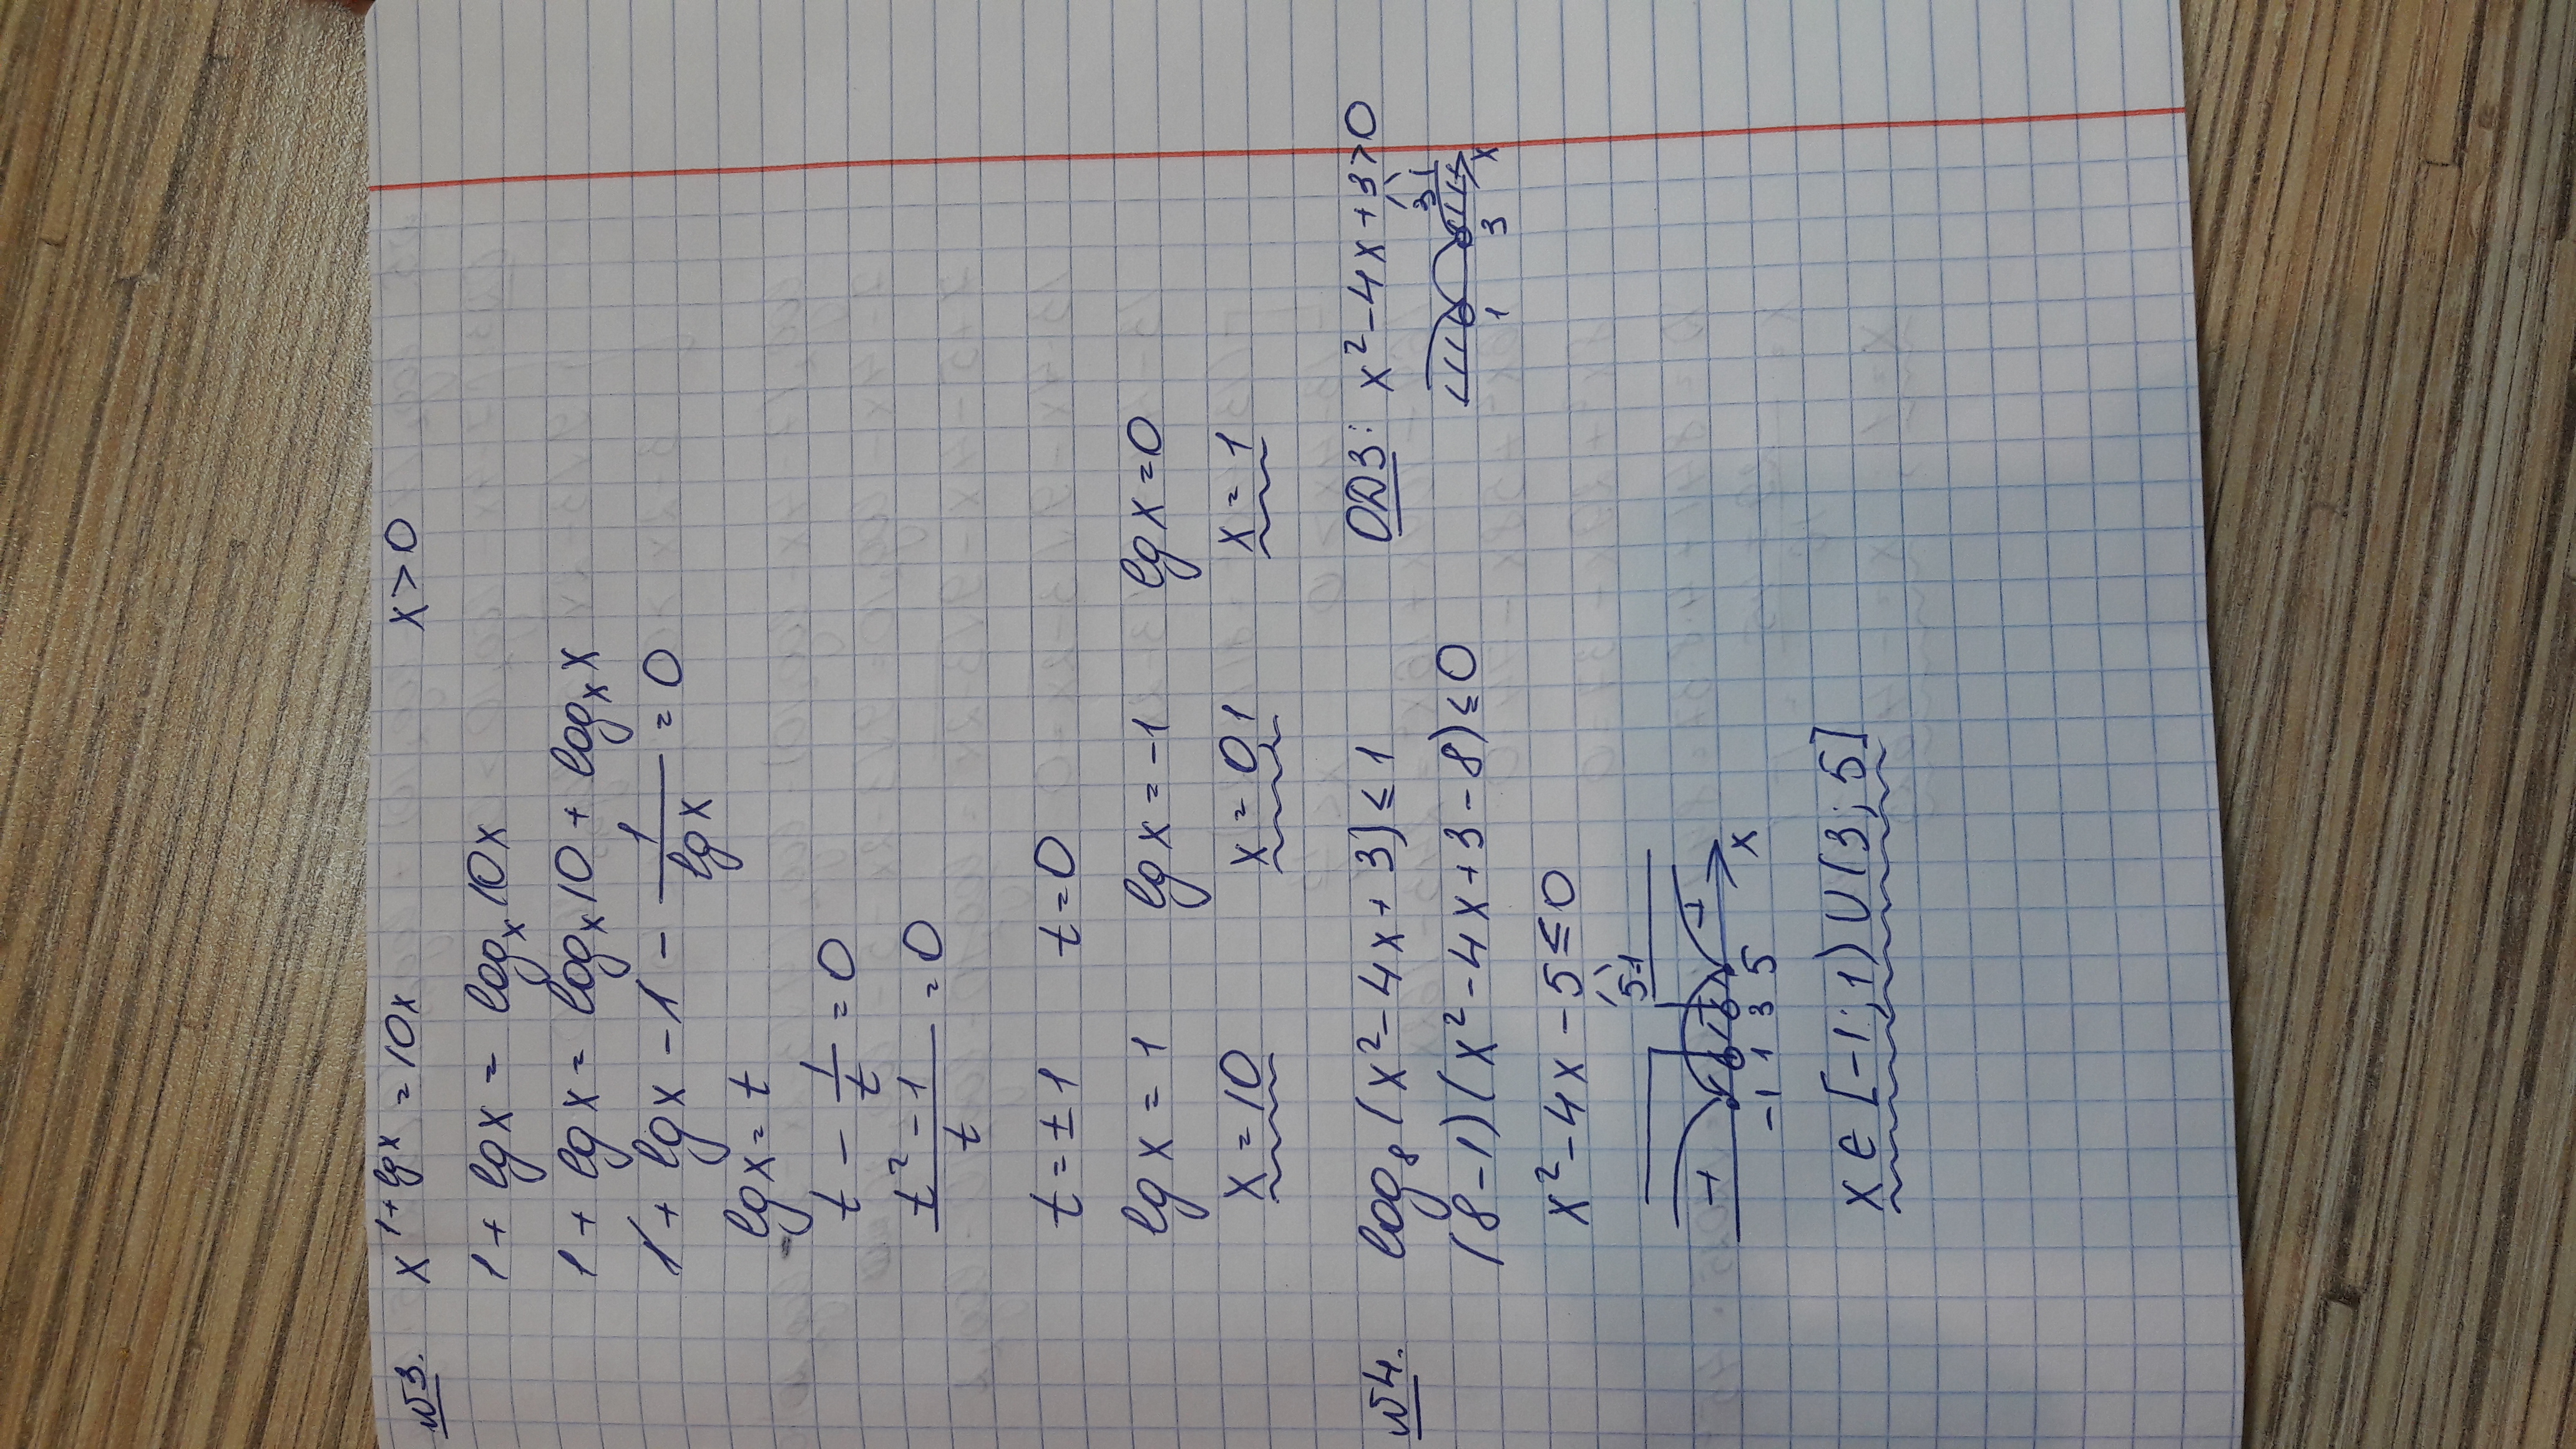 №3. x^(1+lg x) = 10x x > 0
1 + lg x = log_x 10x
1 + lg x = log_x 10 + log_x x
1 + lg x - 1 - 1/lg x = 0
lg x = t
t - 1/t = 0
(t² - 1)/t = 0
t = ± 1 t = 0
lg x = 1 lg x = -1 lg x = 0
x = 10 x = 0,1 x = 1
№4. log₈(x² - 4x + 3) ≤ 1 ОДЗ: x² - 4x + 3 > 0
3 1
(8-1)(x² - 4x + 3 - 8) ≤ 0
1 3 x
x² - 4x - 5 ≤ 0
5 -1
+ - +
-1 1 3 5 x
x ∈ [-1; 1) ∪ (3; 5]